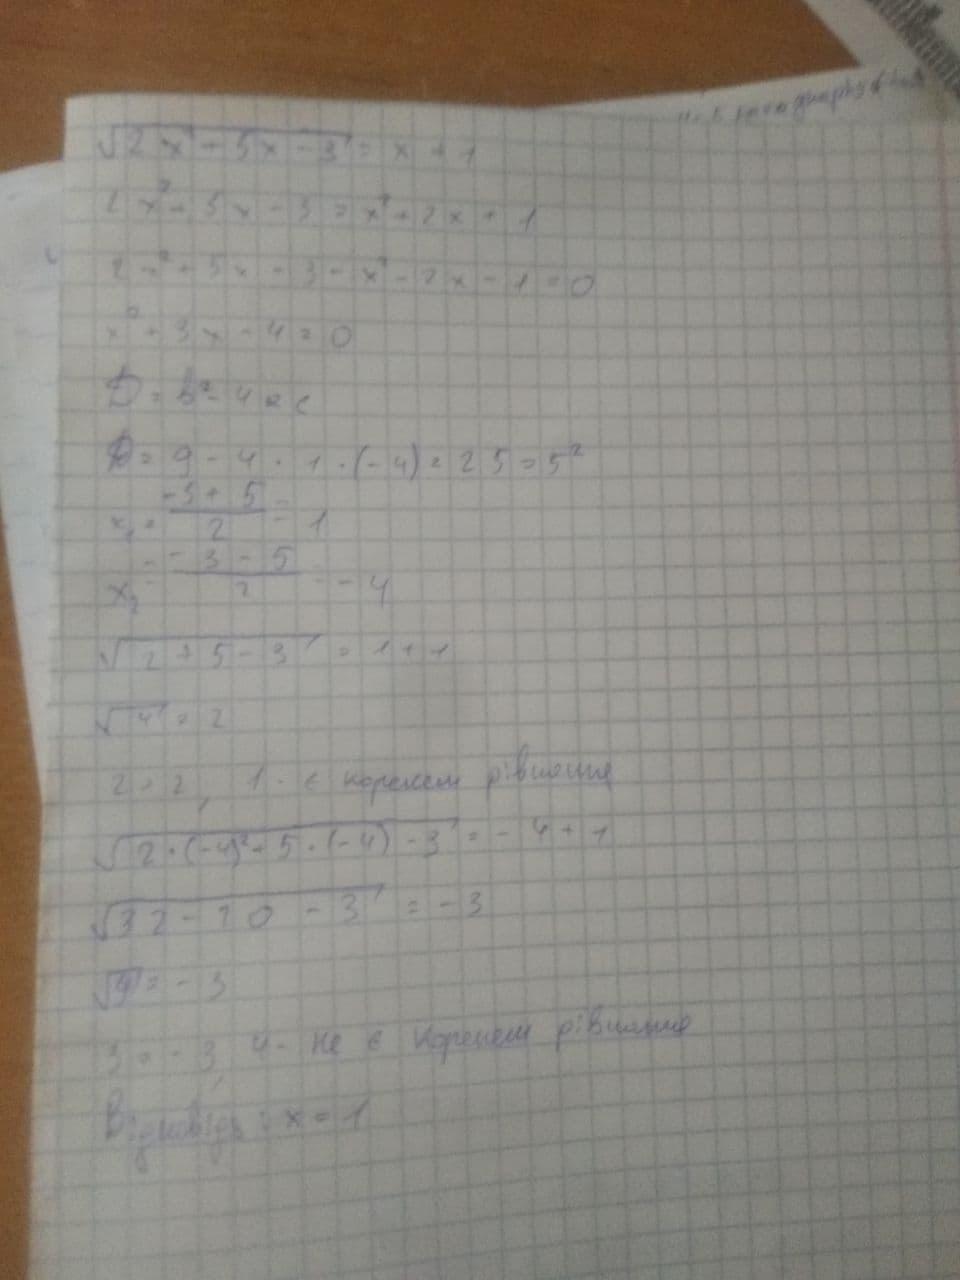 √2x²+5x-3 = x+1
2x²+5x-3 = x²+2x+1
2x²+5x-3-x²-2x-1=0
x²+3x-4=0
D = b²-4ac
D = 9-4·1·(-4)=25=5²
x₁ = -3+5/2 = 1
x₂ = -3-5/2 = -4
√2+5-3 = 1+1
√4 = 2
2=2, 1- є коренем рівняння
√2·(-4)²+5·(-4)-3 = -4+1
√32-20-3 = -3
√9 = -3
3=-3, 4- не є коренем рівняння
Відповідь: x=1